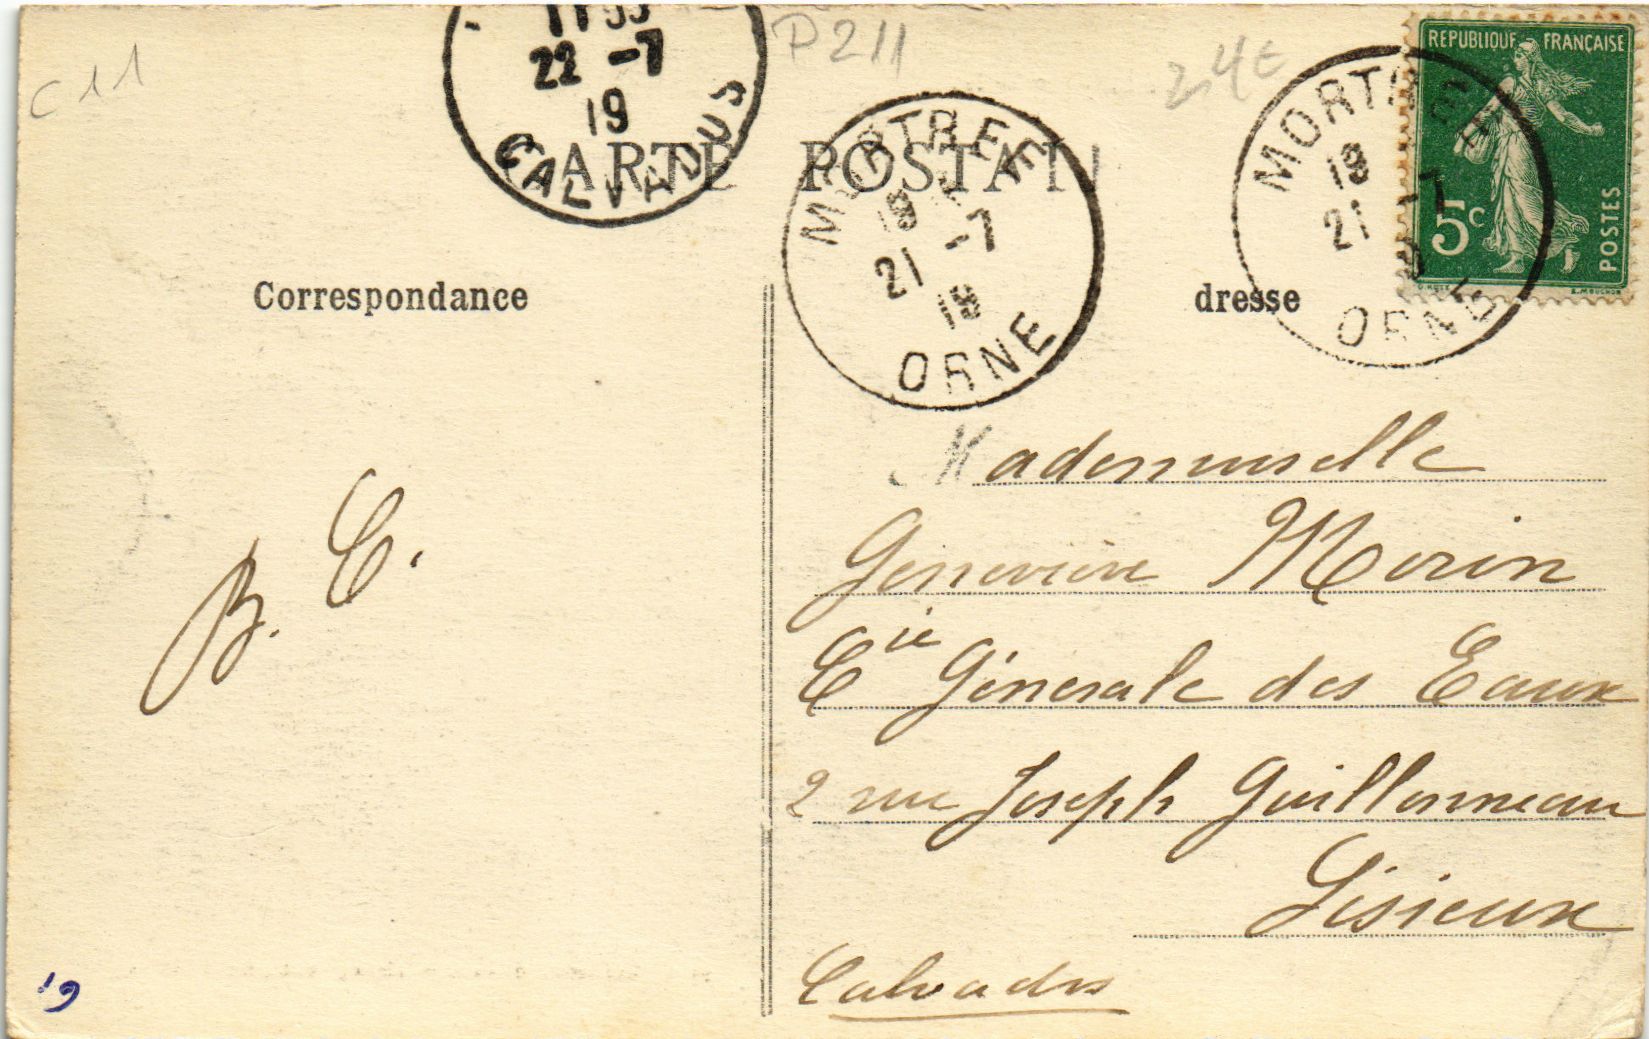 C11
P211
24E
11 35
22 -7
19
CALVADOS
CARTE POSTAL
MORTREE
18
21 -7
19
ORNE
MORTREE
18
21 -7
ORNE
REPUBLIQUE FRANÇAISE
5c
POSTES
Correspondance
dresse
Mademoiselle
Geneviève Morin
Cie Générale des Eaux
2 rue Joseph Guillonneau
Lisieux
Calvados
B. C.
19